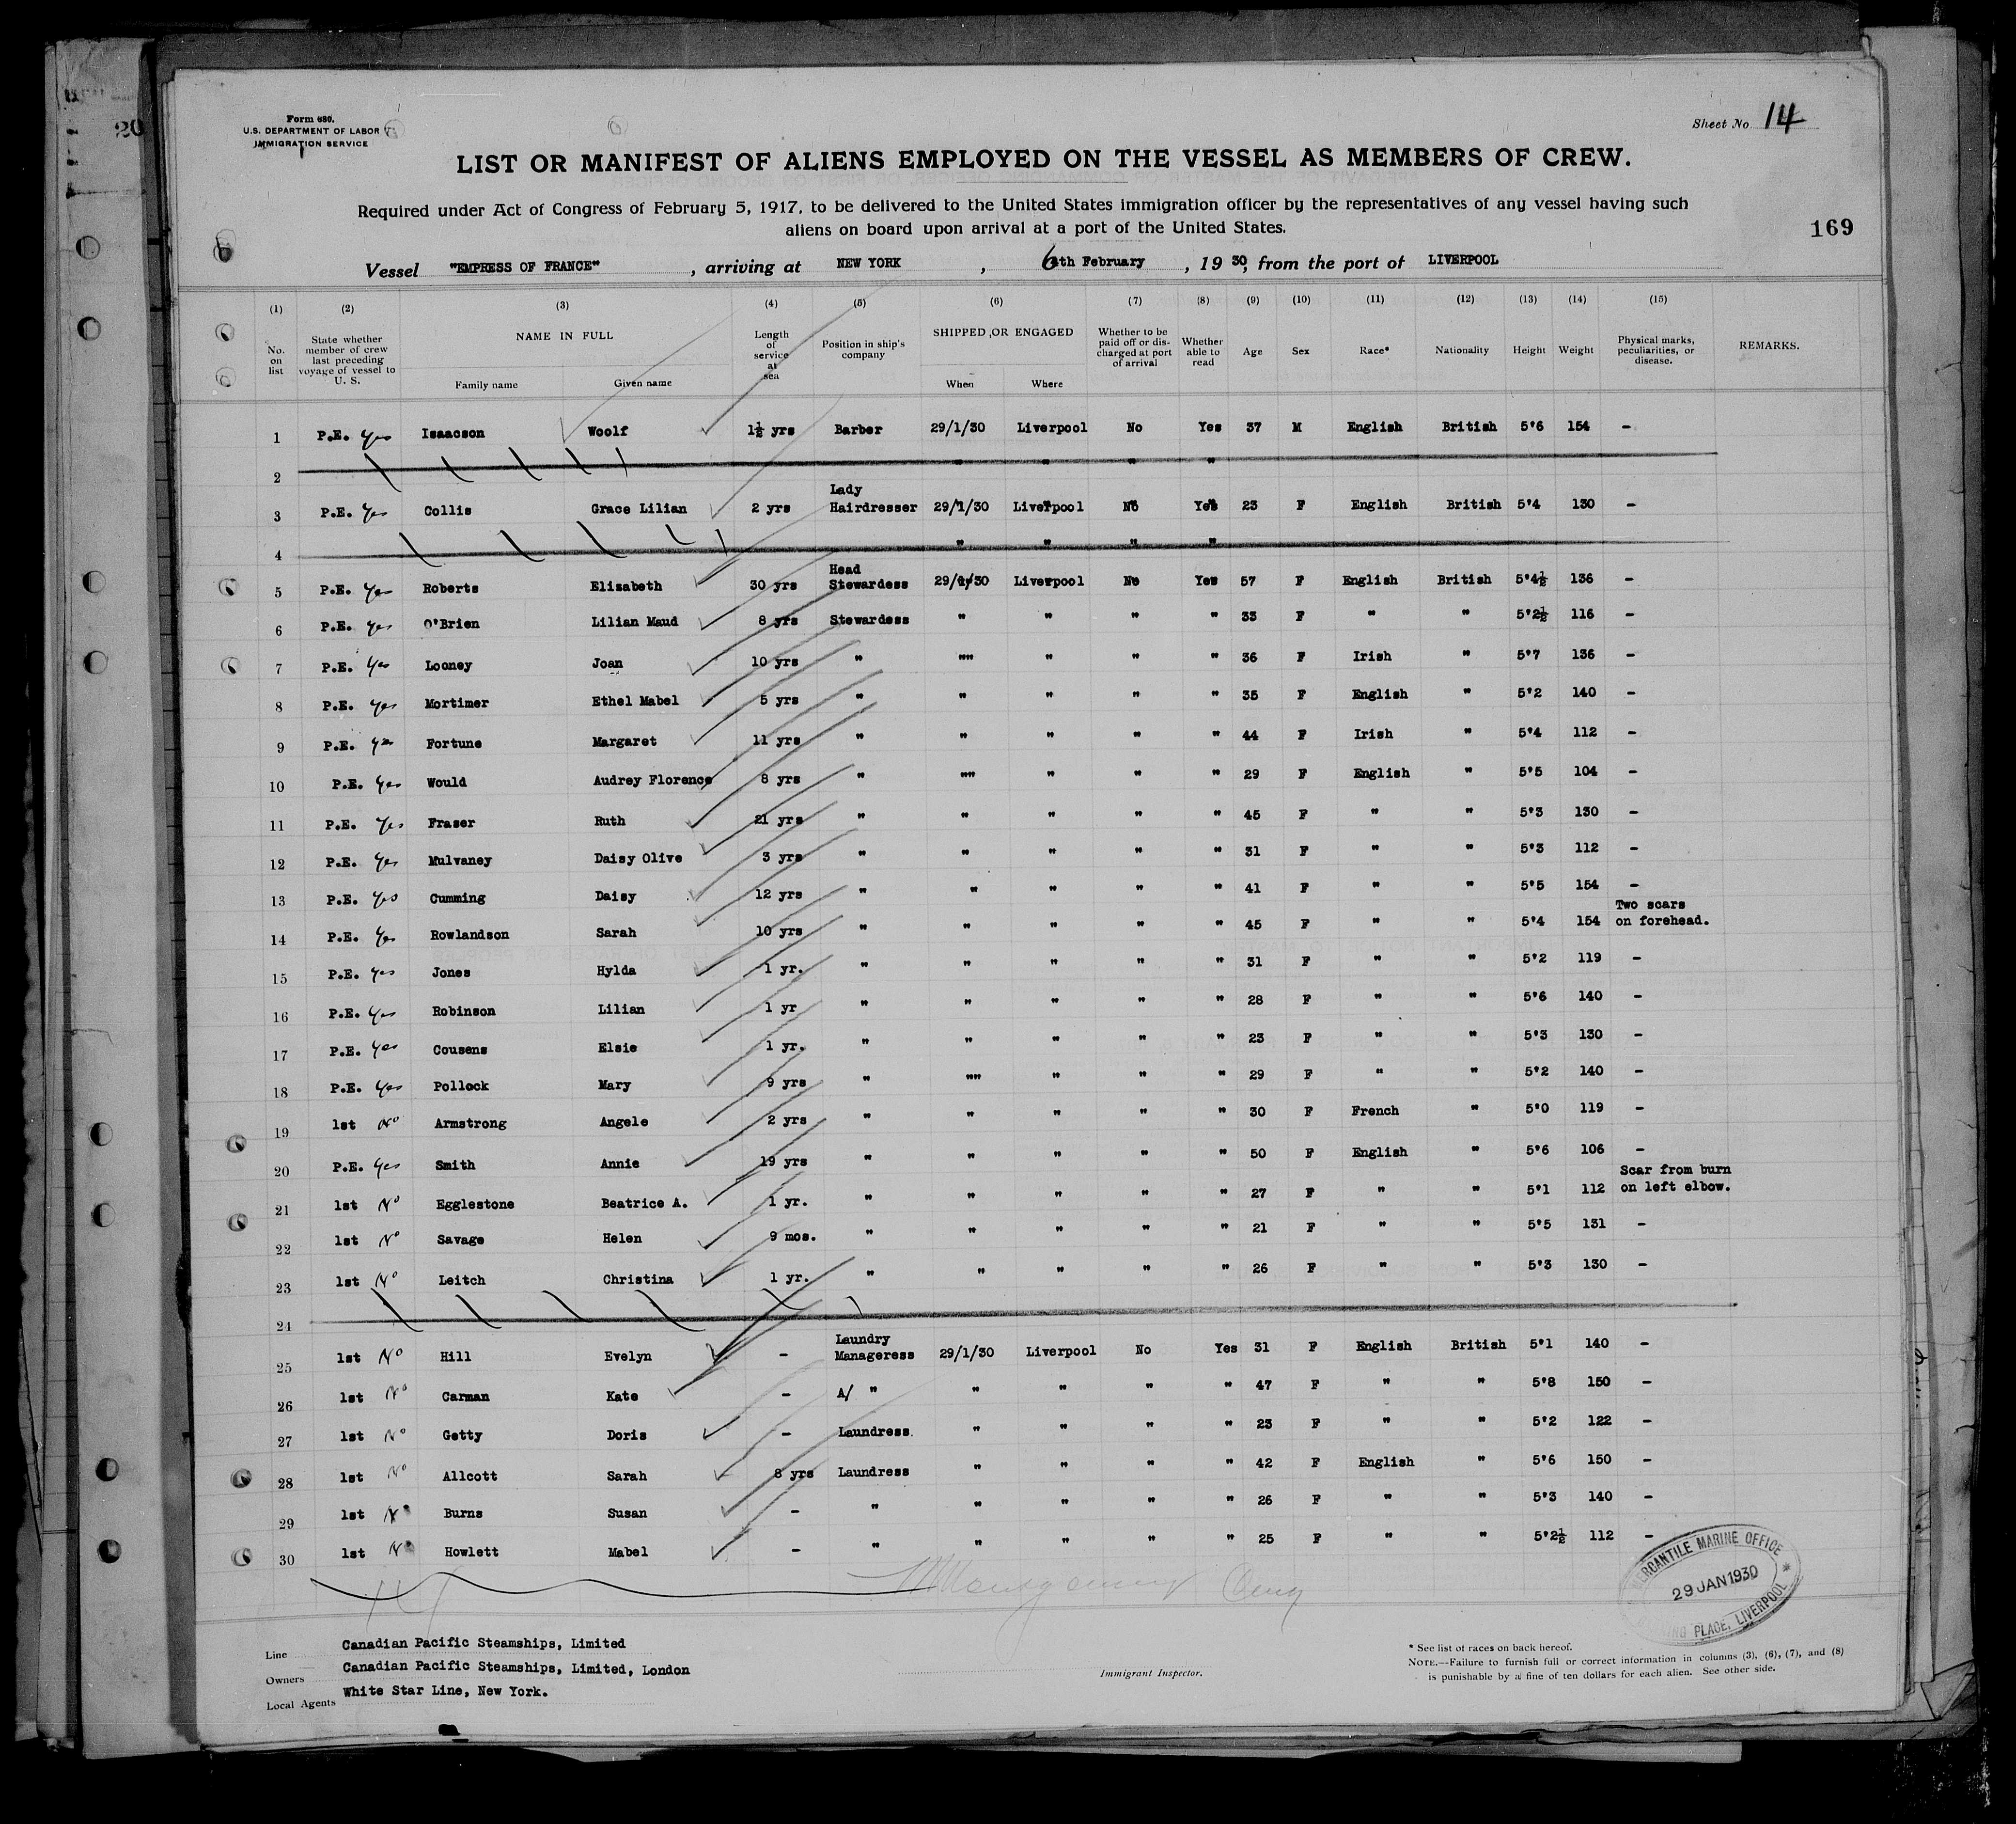 20
Form 680.
U.S. DEPARTMENT OF LABOR
IMMIGRATION SERVICE
Sheet No. 14
LIST OR MANIFEST OF ALIENS EMPLOYED ON THE VESSEL AS MEMBERS OF CREW.
Required under Act of Congress of February 5, 1917, to be delivered to the United States immigration officer by the representatives of any vessel having such
aliens on board upon arrival at a port of the United States.
169
Vessel "EMPRESS OF FRANCE", arriving at NEW YORK, 6th February, 1930, from the port of LIVERPOOL
(1) (2) (3) (4) (5) (6) (7) (8) (9) (10) (11) (12) (13) (14) (15)
No. on list | State whether member of crew last preceding voyage of vessel to U. S. | NAME IN FULL | Length of service at sea | Position in ship's company | SHIPPED OR ENGAGED | Whether to be paid off or discharged at port of arrival | Whether able to read | Age | Sex | Race* | Nationality | Height | Weight | Physical marks, peculiarities, or disease. | REMARKS.
Family name | Given name | When | Where
1 P.E. Yes Isaacson Woolf 1½ yrs Barber 29/1/30 Liverpool No Yes 37 M English British 5'6 154 -
2 " " " "
3 P.E. Yes Collis Grace Lilian 2 yrs Lady Hairdresser 29/1/30 Liverpool No Yes 23 F English British 5'4 130 -
4 " " " "
5 P.E. Yes Roberts Elizabeth 30 yrs Head Stewardess 29/1/30 Liverpool No Yes 57 F English British 5'4½ 136 -
6 P.E. Yes O'Brien Lilian Maud 8 yrs Stewardess " " " " 33 F " " 5'2½ 116 -
7 P.E. Yes Looney Joan 10 yrs " "" " " " 36 F Irish " 5'7 136 -
8 P.E. Yes Mortimer Ethel Mabel 5 yrs " " " " " 35 F English " 5'2 140 -
9 P.E. Yes Fortune Margaret 11 yrs " " " " " 44 F Irish " 5'4 112 -
10 P.E. Yes Would Audrey Florence 8 yrs " "" " " " 29 F English " 5'5 104 -
11 P.E. Yes Fraser Ruth 21 yrs " " " " " 45 F " " 5'3 130 -
12 P.E. Yes Mulvaney Daisy Olive 3 yrs " " " " " 31 F " " 5'3 112 -
13 P.E. Yes Cumming Daisy 12 yrs " " " " " 41 F " " 5'5 154 -
14 P.E. Yes Rowlandson Sarah 10 yrs " " " " " 45 F " " 5'4 154 Two scars on forehead.
15 P.E. Yes Jones Hylda 1 yr. " " " " " 31 F " " 5'2 119 -
16 P.E. Yes Robinson Lilian 1 yr " " " " " 28 F " " 5'6 140 -
17 P.E. Yes Cousens Elsie 1 yr. " " " " " 23 F " " 5'3 130 -
18 P.E. Yes Pollock Mary 9 yrs " "" " " " 29 F " " 5'2 140 -
19 1st No Armstrong Angele 2 yrs " " " " " 30 F French " 5'0 119 -
20 P.E. Yes Smith Annie 19 yrs " " " " " 50 F English " 5'6 106 -
21 1st No Egglestone Beatrice A. 1 yr. " " " " " 27 F " " 5'1 112 Scar from burn on left elbow.
22 1st No Savage Helen 9 mos. " " " " " 21 F " " 5'5 131 -
23 1st No Leitch Christina 1 yr. " " " " " 26 F " " 5'3 130 -
24
25 1st No Hill Evelyn - Laundry Manageress 29/1/30 Liverpool No Yes 31 F English British 5'1 140 -
26 1st No Carman Kate - A/ " " " " " 47 F " " 5'8 150 -
27 1st No Getty Doris - Laundress. " " " " 23 F " " 5'2 122 -
28 1st No Allcott Sarah 8 yrs Laundress " " " " 42 F English " 5'6 150 -
29 1st No Burns Susan - " " " " " 26 F " " 5'3 140 -
30 1st No Howlett Mabel - " " " " " 25 F " " 5'2½ 112 -
MERCANTILE MARINE OFFICE
29 JAN 1930
PLACE, LIVERPOOL
Line Canadian Pacific Steamships, Limited
Owners Canadian Pacific Steamships, Limited, London
Local Agents White Star Line, New York.
Immigrant Inspector.
* See list of races on back hereof.
NOTE.—Failure to furnish full or correct information in columns (3), (6), (7), and (8)
is punishable by a fine of ten dollars for each alien. See other side.